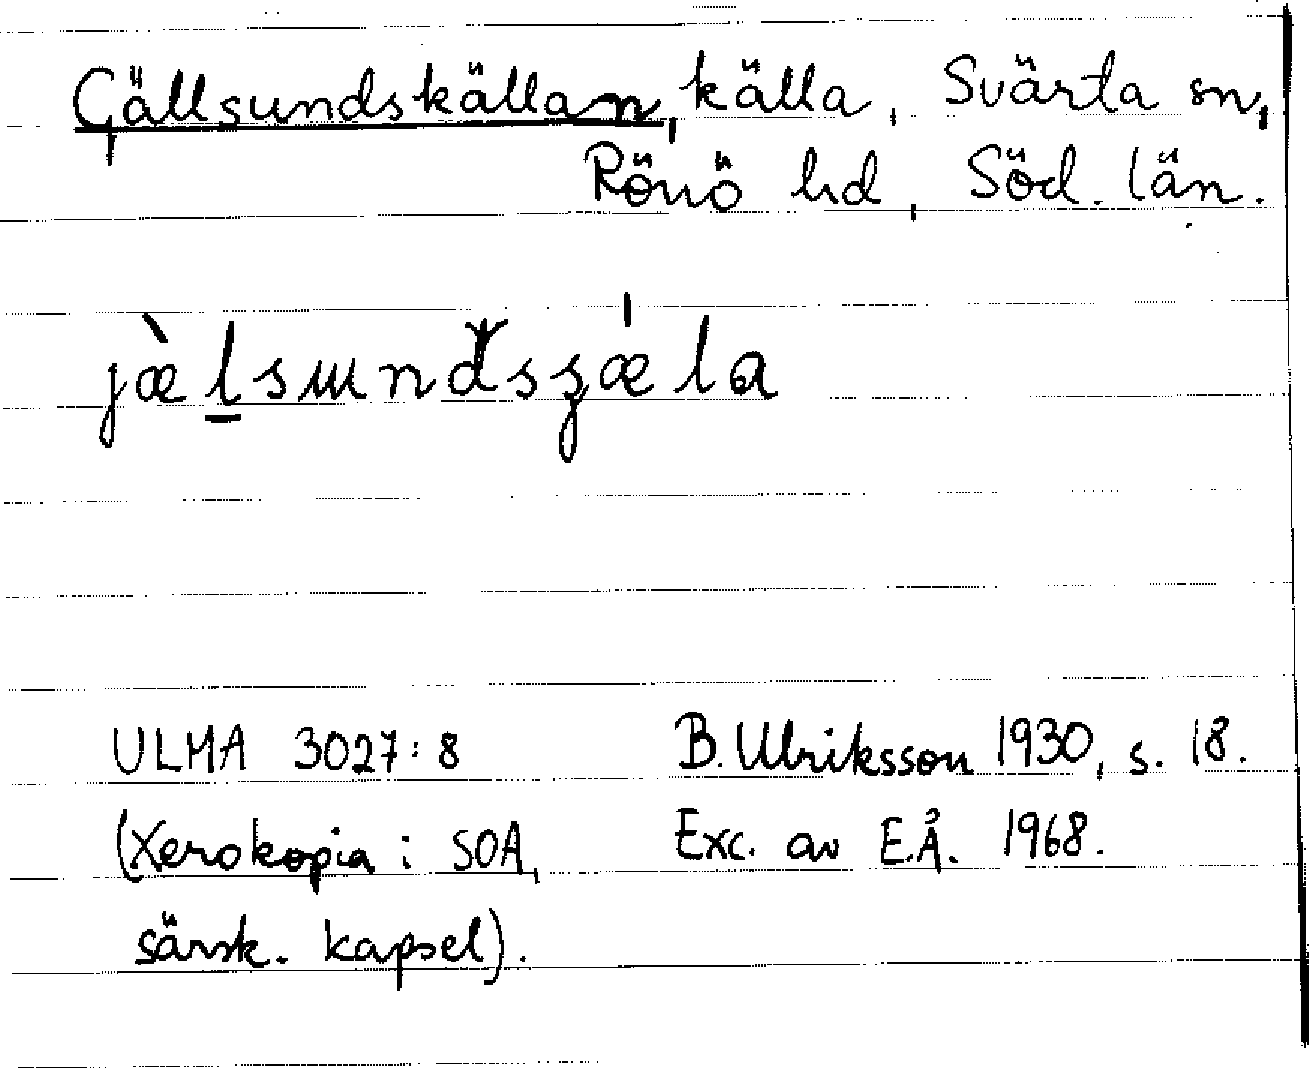 Gällsundskällan, källa, Svärta sn,
Rönö hd, Söd. län.
jæ̀lsundsʂæ̍la
ULMA 3027:8 B. Ulriksson 1930, s. 18.
(Xerokopia i SOA, Exc. av E.Å. 1968.
särsk. kapsel).